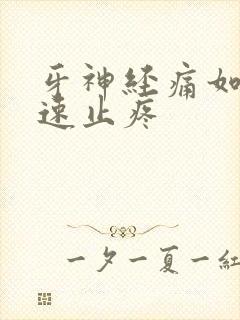 牙神经痛如
速止疼
一夕一夏一紅